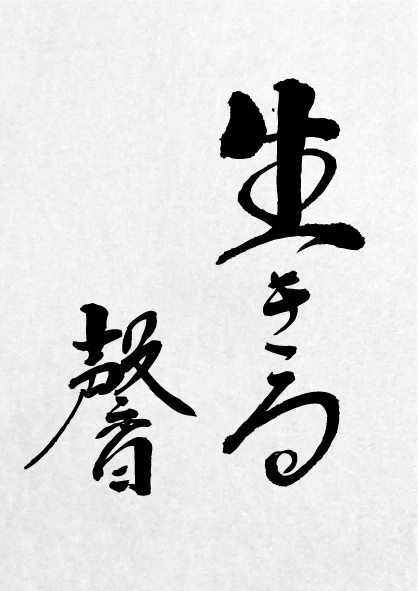 生きる
馨